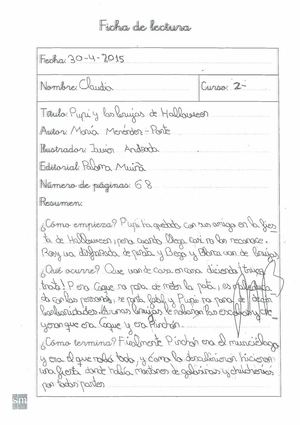 Ficha de lectura
Fecha: 30-4-2015
Nombre: Claudia
Curso: 2-
Título: Pupi y las brujas de Halloween
Autor: María Menéndez-Ponte
Ilustrador: Javier Andrada
Editorial: Paloma Muiña
Número de páginas: 68
Resumen:
¿Cómo empieza? Pupi ha quedado con sus amigos en la fies
ta de Halloween, pero cuando llega casi no los reconoce.
Rosy va disfrazada de y Bego y Blanca van de brujas
¿Qué ocurre? Que van de casa en casa diciendo ¡truco o
trato! Pero Coque no para de meter la pata, es maleduca
do con las personas, se porta fatal y Pupi no para de
las brujas le robaron las escobas y
yeron que era Coque y era Pinchón.
¿Cómo termina? Finalmente Pinchón era el murciélago
y era el que robó todo, y cómo lo hicieron
una fiesta donde había montones de golosinas y chucherías
por todas partes
sm